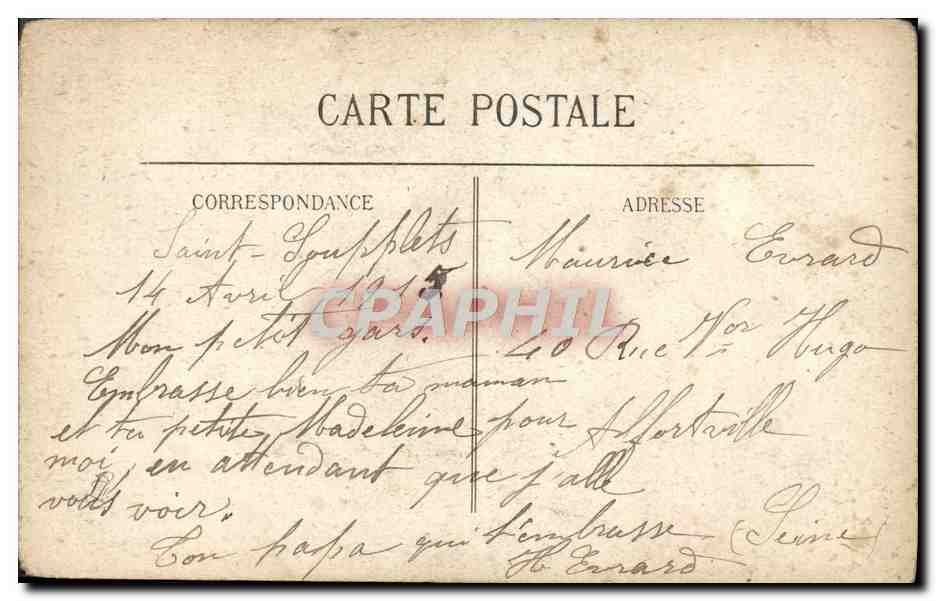 CARTE POSTALE
CORRESPONDANCE
Saint-Soupplets
14 Avril 1915
Mon petit gars.
Embrasse bien ta maman
et ta petite Madeleine pour
moi, en attendant que j'alle
vous voir.
Ton papa qui t'embrasse
H Evrard
ADRESSE
Maurice Evrard
40 Rue Vor Hugo
Alfortville
(Seine)
CPAPHIL